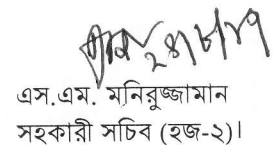 এস.এম. মনিরুজ্জামান
সহকারী সচিব (হজ-২)।